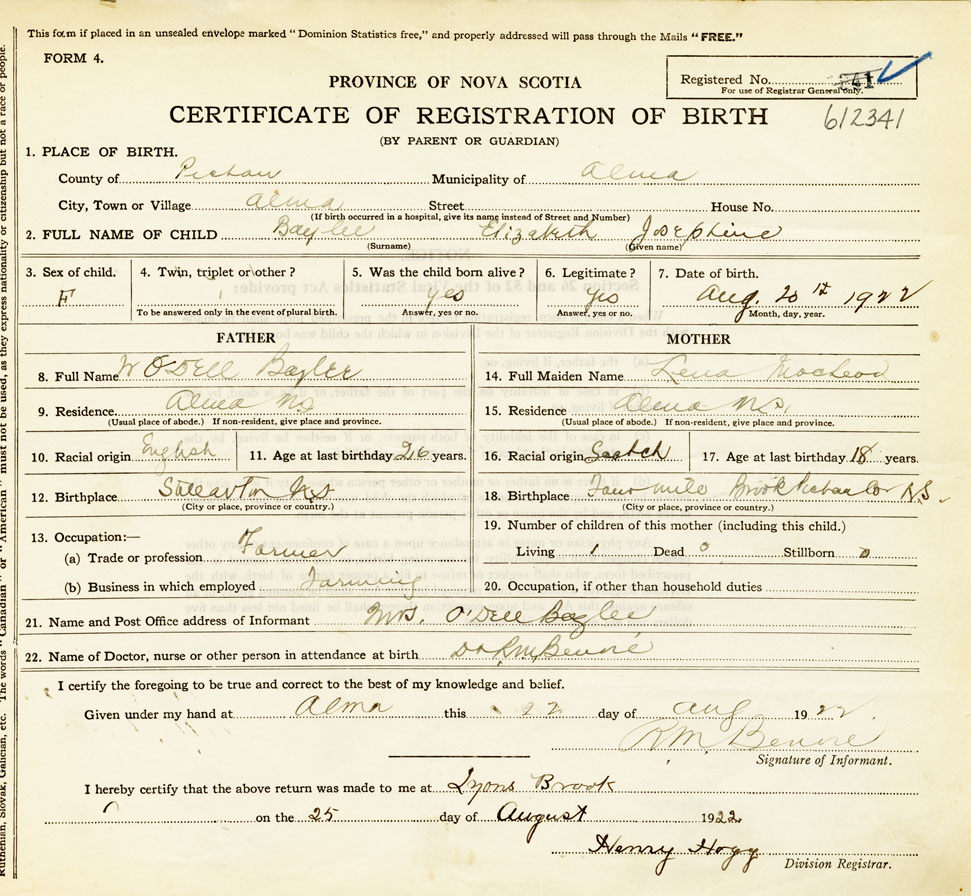 This form if placed in an unsealed envelope marked “Dominion Statistics free,” and properly addressed will pass through the Mails “FREE.”
FORM 4.
Registered No. 341
For use of Registrar General only.
PROVINCE OF NOVA SCOTIA
CERTIFICATE OF REGISTRATION OF BIRTH
612341
(BY PARENT OR GUARDIAN)
1. PLACE OF BIRTH.
County of Pictou Municipality of Alma
City, Town or Village Alma Street House No.
(If birth occurred in a hospital, give its name instead of Street and Number)
2. FULL NAME OF CHILD Baylee Elizabeth Josephine
(Surname) (Given name)
3. Sex of child. 4. Twin, triplet or other? 5. Was the child born alive? 6. Legitimate? 7. Date of birth.
F yes yes Aug. 20th 1922
To be answered only in the event of plural birth. Answer, yes or no. Answer, yes or no. Month, day, year.
FATHER
8. Full Name W O'Dell Baylee
9. Residence Alma NS
(Usual place of abode.) If non-resident, give place and province.
10. Racial origin English 11. Age at last birthday 26 years.
12. Birthplace Stellarton NS
(City or place, province or country.)
13. Occupation:—
(a) Trade or profession Farmer
(b) Business in which employed Farming
MOTHER
14. Full Maiden Name Lena MacLeod
15. Residence Alma N.S.
(Usual place of abode.) If non-resident, give place and province.
16. Racial origin Scotch 17. Age at last birthday 18 years.
18. Birthplace Four mile Brook Co N.S.
(City or place, province or country.)
19. Number of children of this mother (including this child.)
Living 1 Dead 0 Stillborn 0
20. Occupation, if other than household duties
21. Name and Post Office address of Informant Mrs. O'Dell Baylee
22. Name of Doctor, nurse or other person in attendance at birth Dr R M Benvie
I certify the foregoing to be true and correct to the best of my knowledge and belief.
Given under my hand at Alma this 22 day of Aug 1922
R M Benvie
Signature of Informant.
I hereby certify that the above return was made to me at Lyons Brook
on the 25 day of August 1922
Henry Hogg
Division Registrar.
Ruthenian, Slovak, Galician, etc. The words “Canadian” or “American” must not be used, as they express nationality or citizenship but not a race or people.